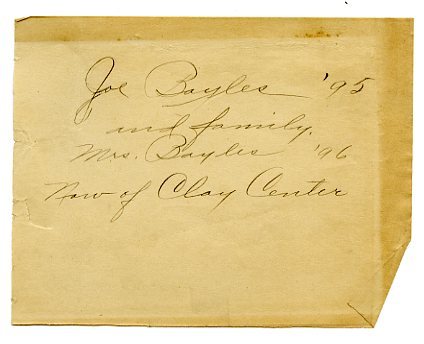 Joe Bayles '95
and family.
Mrs. Bayles '96
Now of Clay Center